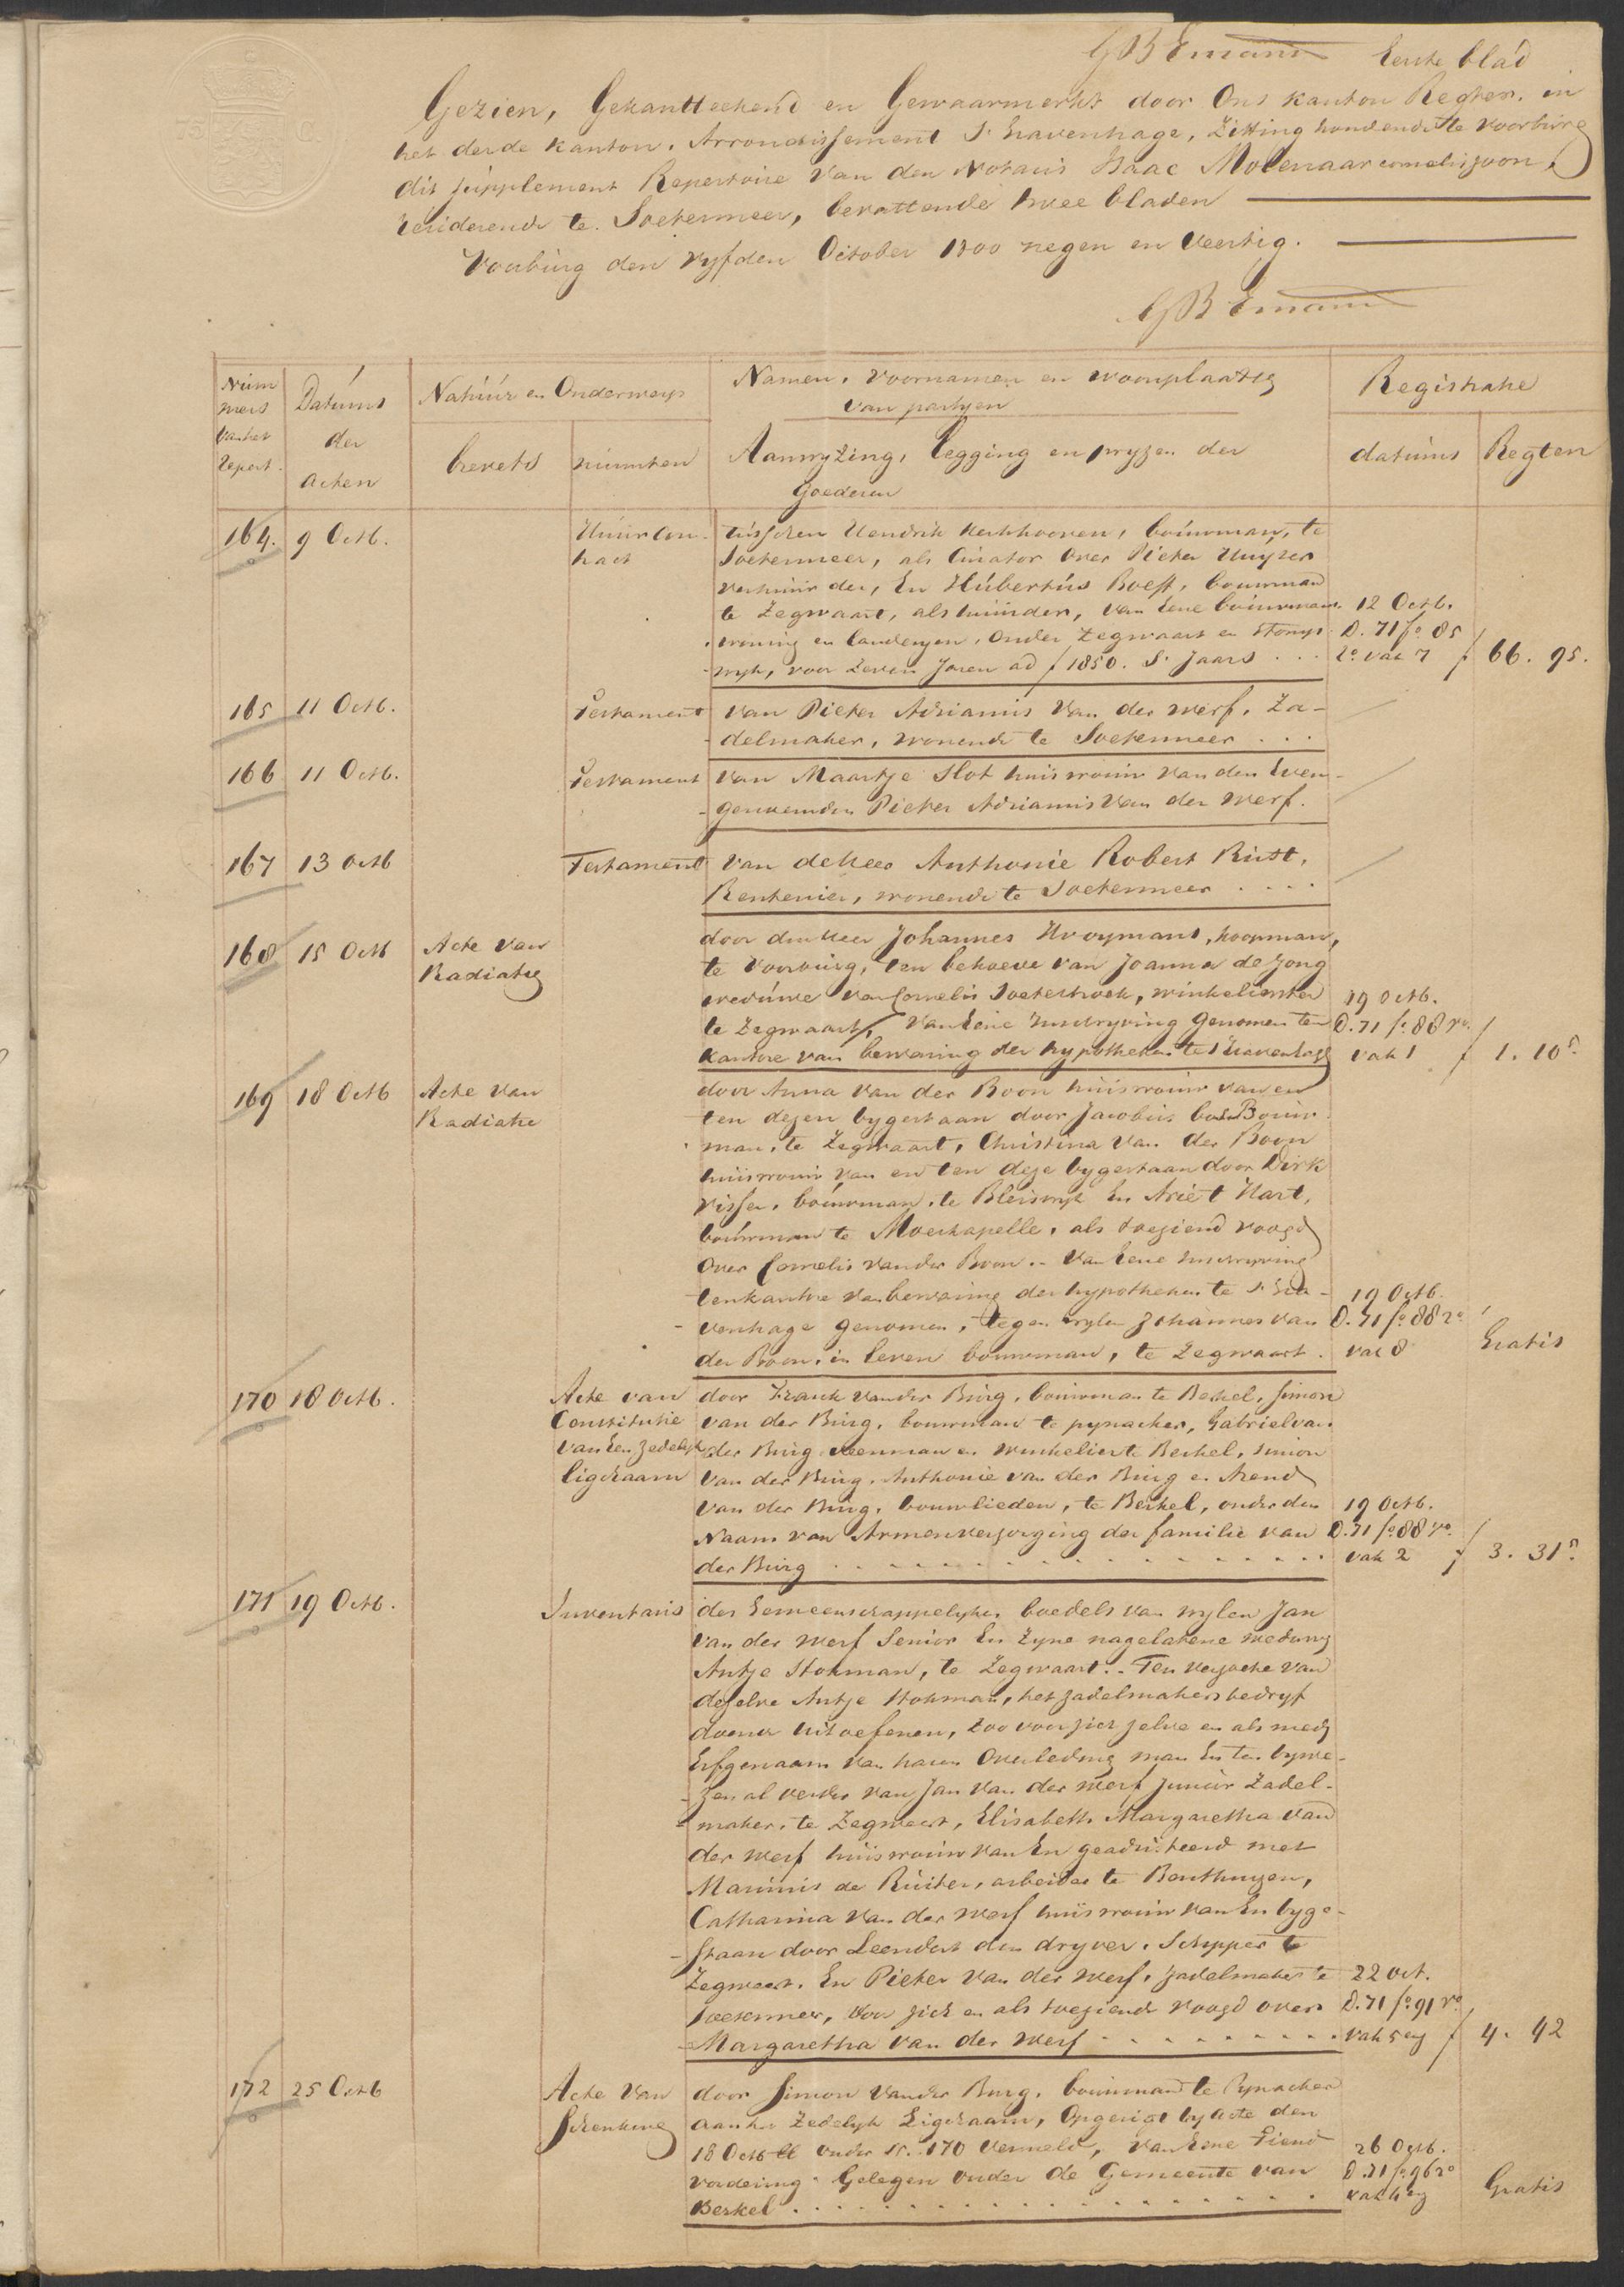 GB Emants Eerste blad
Gezien, Gekantteekend en Gewaarmerkt door Ons Kanton Regter, in
het derde kanton, Arrondissement 's Gravenhage, Zitting houdende te Voorburg
dit supplement Repertoire van den Notaris Isaac Molenaar corneliszoon,
residerende te Soetermeer, bevattende twee bladen
Voorburg den vyfden October 1800 negen en veertig.
GB Emants
Num
mers
van het
Repert.
Datums
der
acten
Natuur en Onderwerp
brevets
minuten
Namen, voornamen en woonplaatse
van partyen
Aanwyzing, legging en pryzen der
goederen
Registratie
datums
Regten
164. 9 Octb. Huurcon-
tract
tusschen Hendrik Kerkhoven, bouwman, te
Soetermeer, als Curator over Pieter Huyser
verhuurder, En Hubertus Boeff, bouwman
te Zegwaart, als huurder, van Eene bouwmans-
woning en landeryen, onder Zegwaart en Stomp-
wyk, voor zeven Jaren ad ƒ 1850. 's Jaars . . .
12 Octb.
D. 71 fo. 85
ro. vak 7 ƒ 66. 95.
165 11 Octb. Testament van Pieter Adrianus van der Werf, Za-
delmaker, wonende te Soetermeer . . .
166 11 Octb. Testament van Maartje Slot huisvrouw van den Even-
genoemden Pieter Adrianus van der Werf.
167 13 Octb Testament van de Heer Anthonie Robert Rutt,
Rentenier, wonende te Soetermeer . . . .
168 15 Octb Acte van
Radiatie
door den Heer Johannes Hrooymans, koopman,
te Voorburg, ten behoeve van Joanna de Jong
weduwe van Cornelis Soeterhoek, winkelierster
te Zegwaart, van Eene Inschryving genomen ten
kantore van bewaring der hypotheken te 's Gravenhage
19 Octb.
D. 71 fo. 88 ro.
vak 1 ƒ 1. 10 5.
169 18 Octb Acte van
Radiatie
door Anna van der Boon huisvrouw van en
ten dezen bygestaan door Jacobus bos Bouw-
man, te Zegwaart, Christina van der Boon
huisvrouw van en ten deze bygestaan door Dirk
Visser, bouwman, te Bleiswyk En Ariet Hart,
bouwman te Moerkapelle, als toeziend voogd
over Cornelis van der Boon .- van Eene inschryving
ten kantore van bewaring der hypotheken te 's Gra-
venhage genomen, tegen wylen Johannes van
der Boon, in leven bouwman, te Zegwaart .
19 Octb.
D. 71 fo 88 ro
vak 8 Gratis
170 18 Octb. Acte van
Constitutie
van Een zedelyk
ligchaam
door Franck van der Burg, bouwman te Berkel, Simon
van der Burg, bouwman te pynacker, Gabriel van
der Burg veenman en winkelier te Berkel, Simon
van der Burg, Anthonie van der Burg en Arend
van der Burg, bouwlieden, te Berkel, onder den
Naam van Armenverzorging der familie van
der Burg . . . . . . . . . .
19 Octb.
D. 71 fo. 88 ro.
vak 2 ƒ 3. 31 5.
171 19 Octb. Inventaris des Gemeenschappelyken boedels van wylen Jan
van der Werf Senior En Zyne nagelatene weduwe
Antje Stokman, te Zegwaart .- Ten verzoeke van
dezelve Antje Stokman, het zadelmakersbedryf
doende uitoefenen, zoo voor zich zelve en als mede
Erfgenaam van haren Overleden man En ten bywe-
zen al verder van Jan van der Werf Junior Zadel-
maker, te Zegwaart, Elisabeth Margaretha van
der Werf huisvrouw van En geadsisteerd met
Marinus de Ruiter, arbeider te Benthuyzen,
Catharina van der Werf huisvrouw van En byge-
staan door Leendert den dryver, Schipper te
Zegwaart. En Pieter van der Werf, zadelmaker te
Soetermeer, voor zich en als toeziende voogd over
Margaretha van der Werf . . . . . . . . .
22 oct.
D. 71 fo. 91 vo
vak 5 ev ƒ 4. 42
172 25 Octb Acte van
Schenking
door Simon van der Burg, bouwman te Pynacker
aan het Zedelyk Ligchaam, Opgerigt by Acte den
18 Octb ll onder No. 170 vermeld, van Eene Tiend
vordering. Gelegen onder de Gemeente van
Berkel . . . . . . . . . . . . .
26 Octb.
D. 71 fo 96 ro
vak 4 ev Gratis